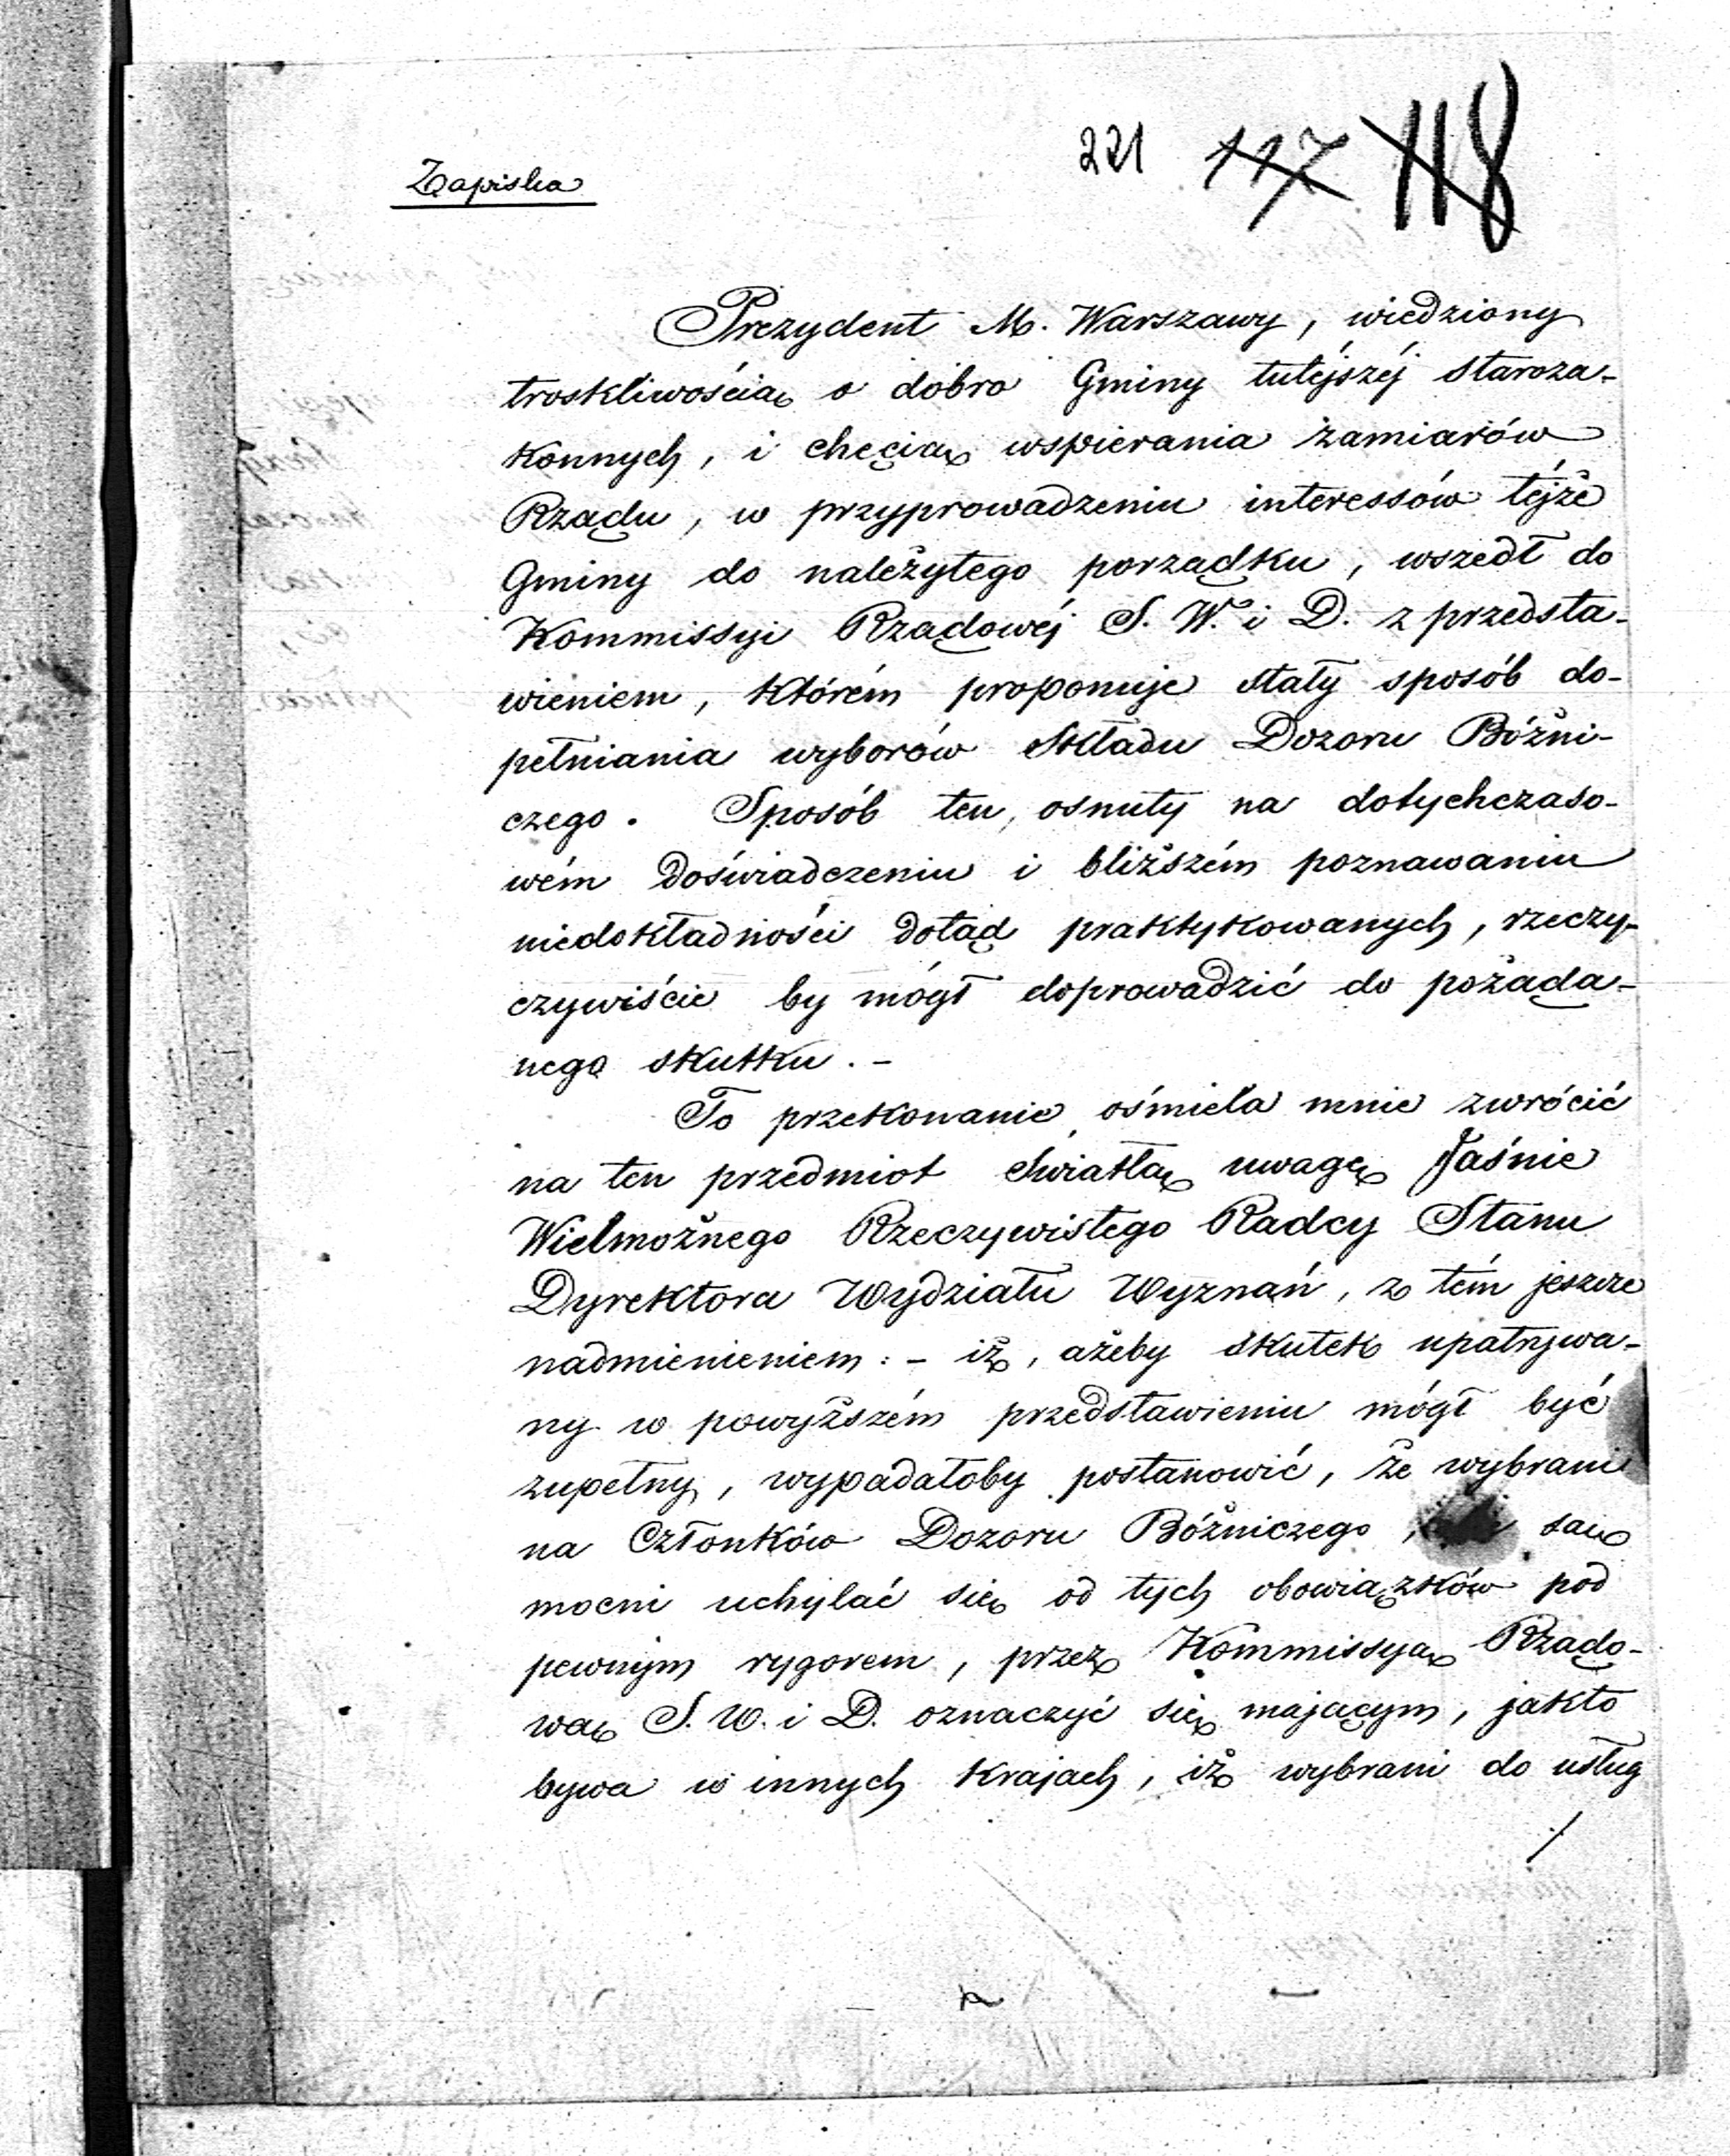 221 117 118
Zapiska
Prezydent M. Warszawy, wiedziony
troskliwością o dobro Gminy tutéjszéj Staroza-
konnych, i chęcią wspierania zamiarów
Rządu, w przyprowadzeniu interessów téjże
Gminy do należytego porządku, wszedł do
Kommissyi Rządowéj S. W. i D. z przedsta-
wieniem, którém proponuje stały sposób do-
pełniania wyborów Składu Dozoru Bóżni-
czego. Sposób ten, osnuty na dotychczaso-
wém doświadczeniu i bliższém poznawaniu
niedokładności dotąd praktykowanych, rzeczy-
czywiście by mógł doprowadzić do pożąda-
nego skutku. -
To przekonanie ośmiela mnie zwrócić
na ten przedmiot światłą uwagę Jaśnie
Wielmożnego Rzeczywistego Radcy Stanu
Dyrektora Wydziału Wyznań, z tém jeszcze
nadmienieniem: - iż, ażeby skutek upatrywa-
ny w powyższém przedstawieniu mógł być
zupełny, wypadałoby postanowić, że wybrani
na Członków Dozoru Bóżniczego, są
mocni uchylać się od tych obowiązków pod
pewnym rygorem, przez Kommissyą Rządo-
wą S. W. i D. oznaczyć się mającym, jak to
bywa w innych krajach, iż wybrani do usług